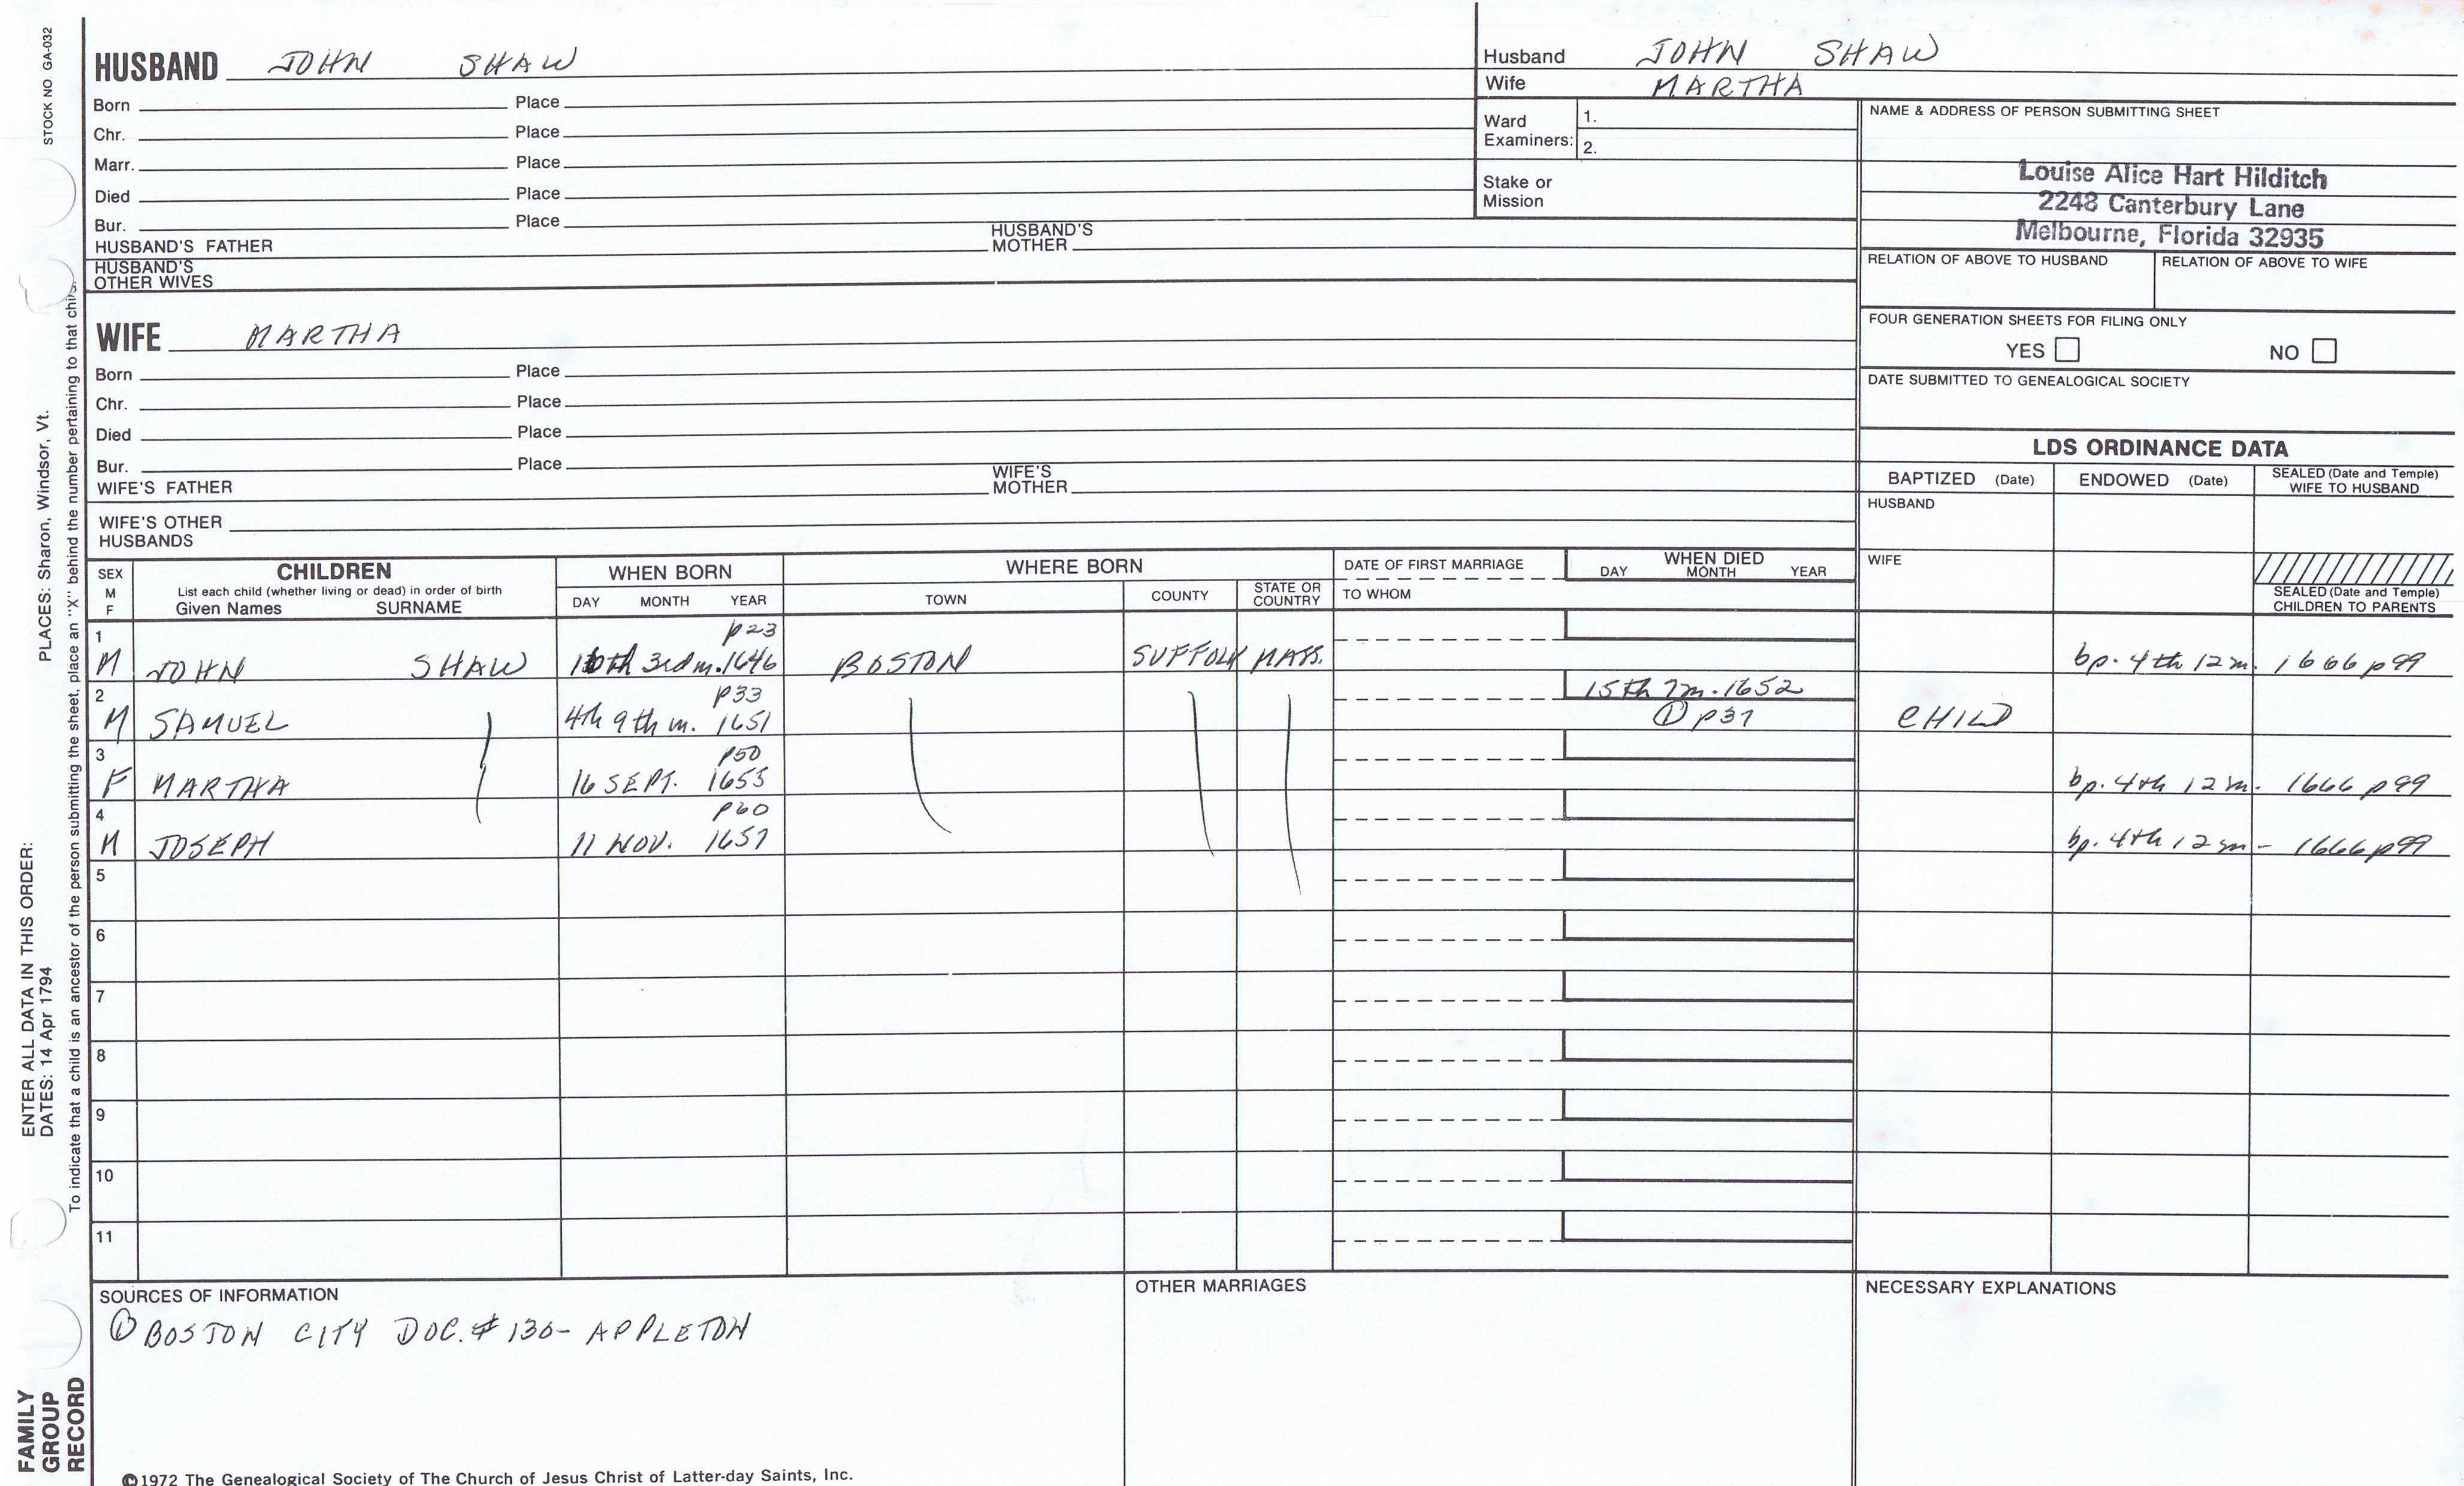 STOCK NO. GA-032
PLACES: Sharon, Windsor, Vt.
ENTER ALL DATA IN THIS ORDER:
DATES: 14 Apr 1794
To indicate that a child is an ancestor of the person submitting the sheet, place an "X" behind the number pertaining to that child.
FAMILY
GROUP
RECORD
HUSBAND JOHN SHAW
Born Place
Chr. Place
Marr. Place
Died Place
Bur. Place
HUSBAND'S FATHER HUSBAND'S MOTHER
HUSBAND'S OTHER WIVES
WIFE MARTHA
Born Place
Chr. Place
Died Place
Bur. Place
WIFE'S FATHER WIFE'S MOTHER
WIFE'S OTHER HUSBANDS
Husband JOHN SHAW
Wife MARTHA
Ward Examiners: 1.
2.
Stake or Mission
NAME & ADDRESS OF PERSON SUBMITTING SHEET
Louise Alice Hart Hilditch
2248 Canterbury Lane
Melbourne, Florida 32935
RELATION OF ABOVE TO HUSBAND RELATION OF ABOVE TO WIFE
FOUR GENERATION SHEETS FOR FILING ONLY
YES NO
DATE SUBMITTED TO GENEALOGICAL SOCIETY
LDS ORDINANCE DATA
BAPTIZED (Date) ENDOWED (Date) SEALED (Date and Temple) WIFE TO HUSBAND
HUSBAND
WIFE
SEALED (Date and Temple) CHILDREN TO PARENTS
SEX M F
CHILDREN
List each child (whether living or dead) in order of birth
Given Names SURNAME
WHEN BORN
DAY MONTH YEAR
WHERE BORN
TOWN COUNTY STATE OR COUNTRY
DATE OF FIRST MARRIAGE
TO WHOM
WHEN DIED
DAY MONTH YEAR
1 p23
M JOHN SHAW 3rd m. 1646 BOSTON SUFFOLK MASS. bp. 4th 12m. 1666 p99
2 p33 15th 7m. 1652
M SAMUEL 4th 9th m. 1651 ① p37 CHILD
3 p50
F MARTHA 16 SEPT. 1655 bp. 4th 12m. 1666 p99
4 p60
M JOSEPH 11 NOV. 1657 bp. 4th 12m - 1666 p99
5
6
7
8
9
10
11
SOURCES OF INFORMATION
① BOSTON CITY DOC. # 130- APPLETON
OTHER MARRIAGES
NECESSARY EXPLANATIONS
©1972 The Genealogical Society of The Church of Jesus Christ of Latter-day Saints, Inc.